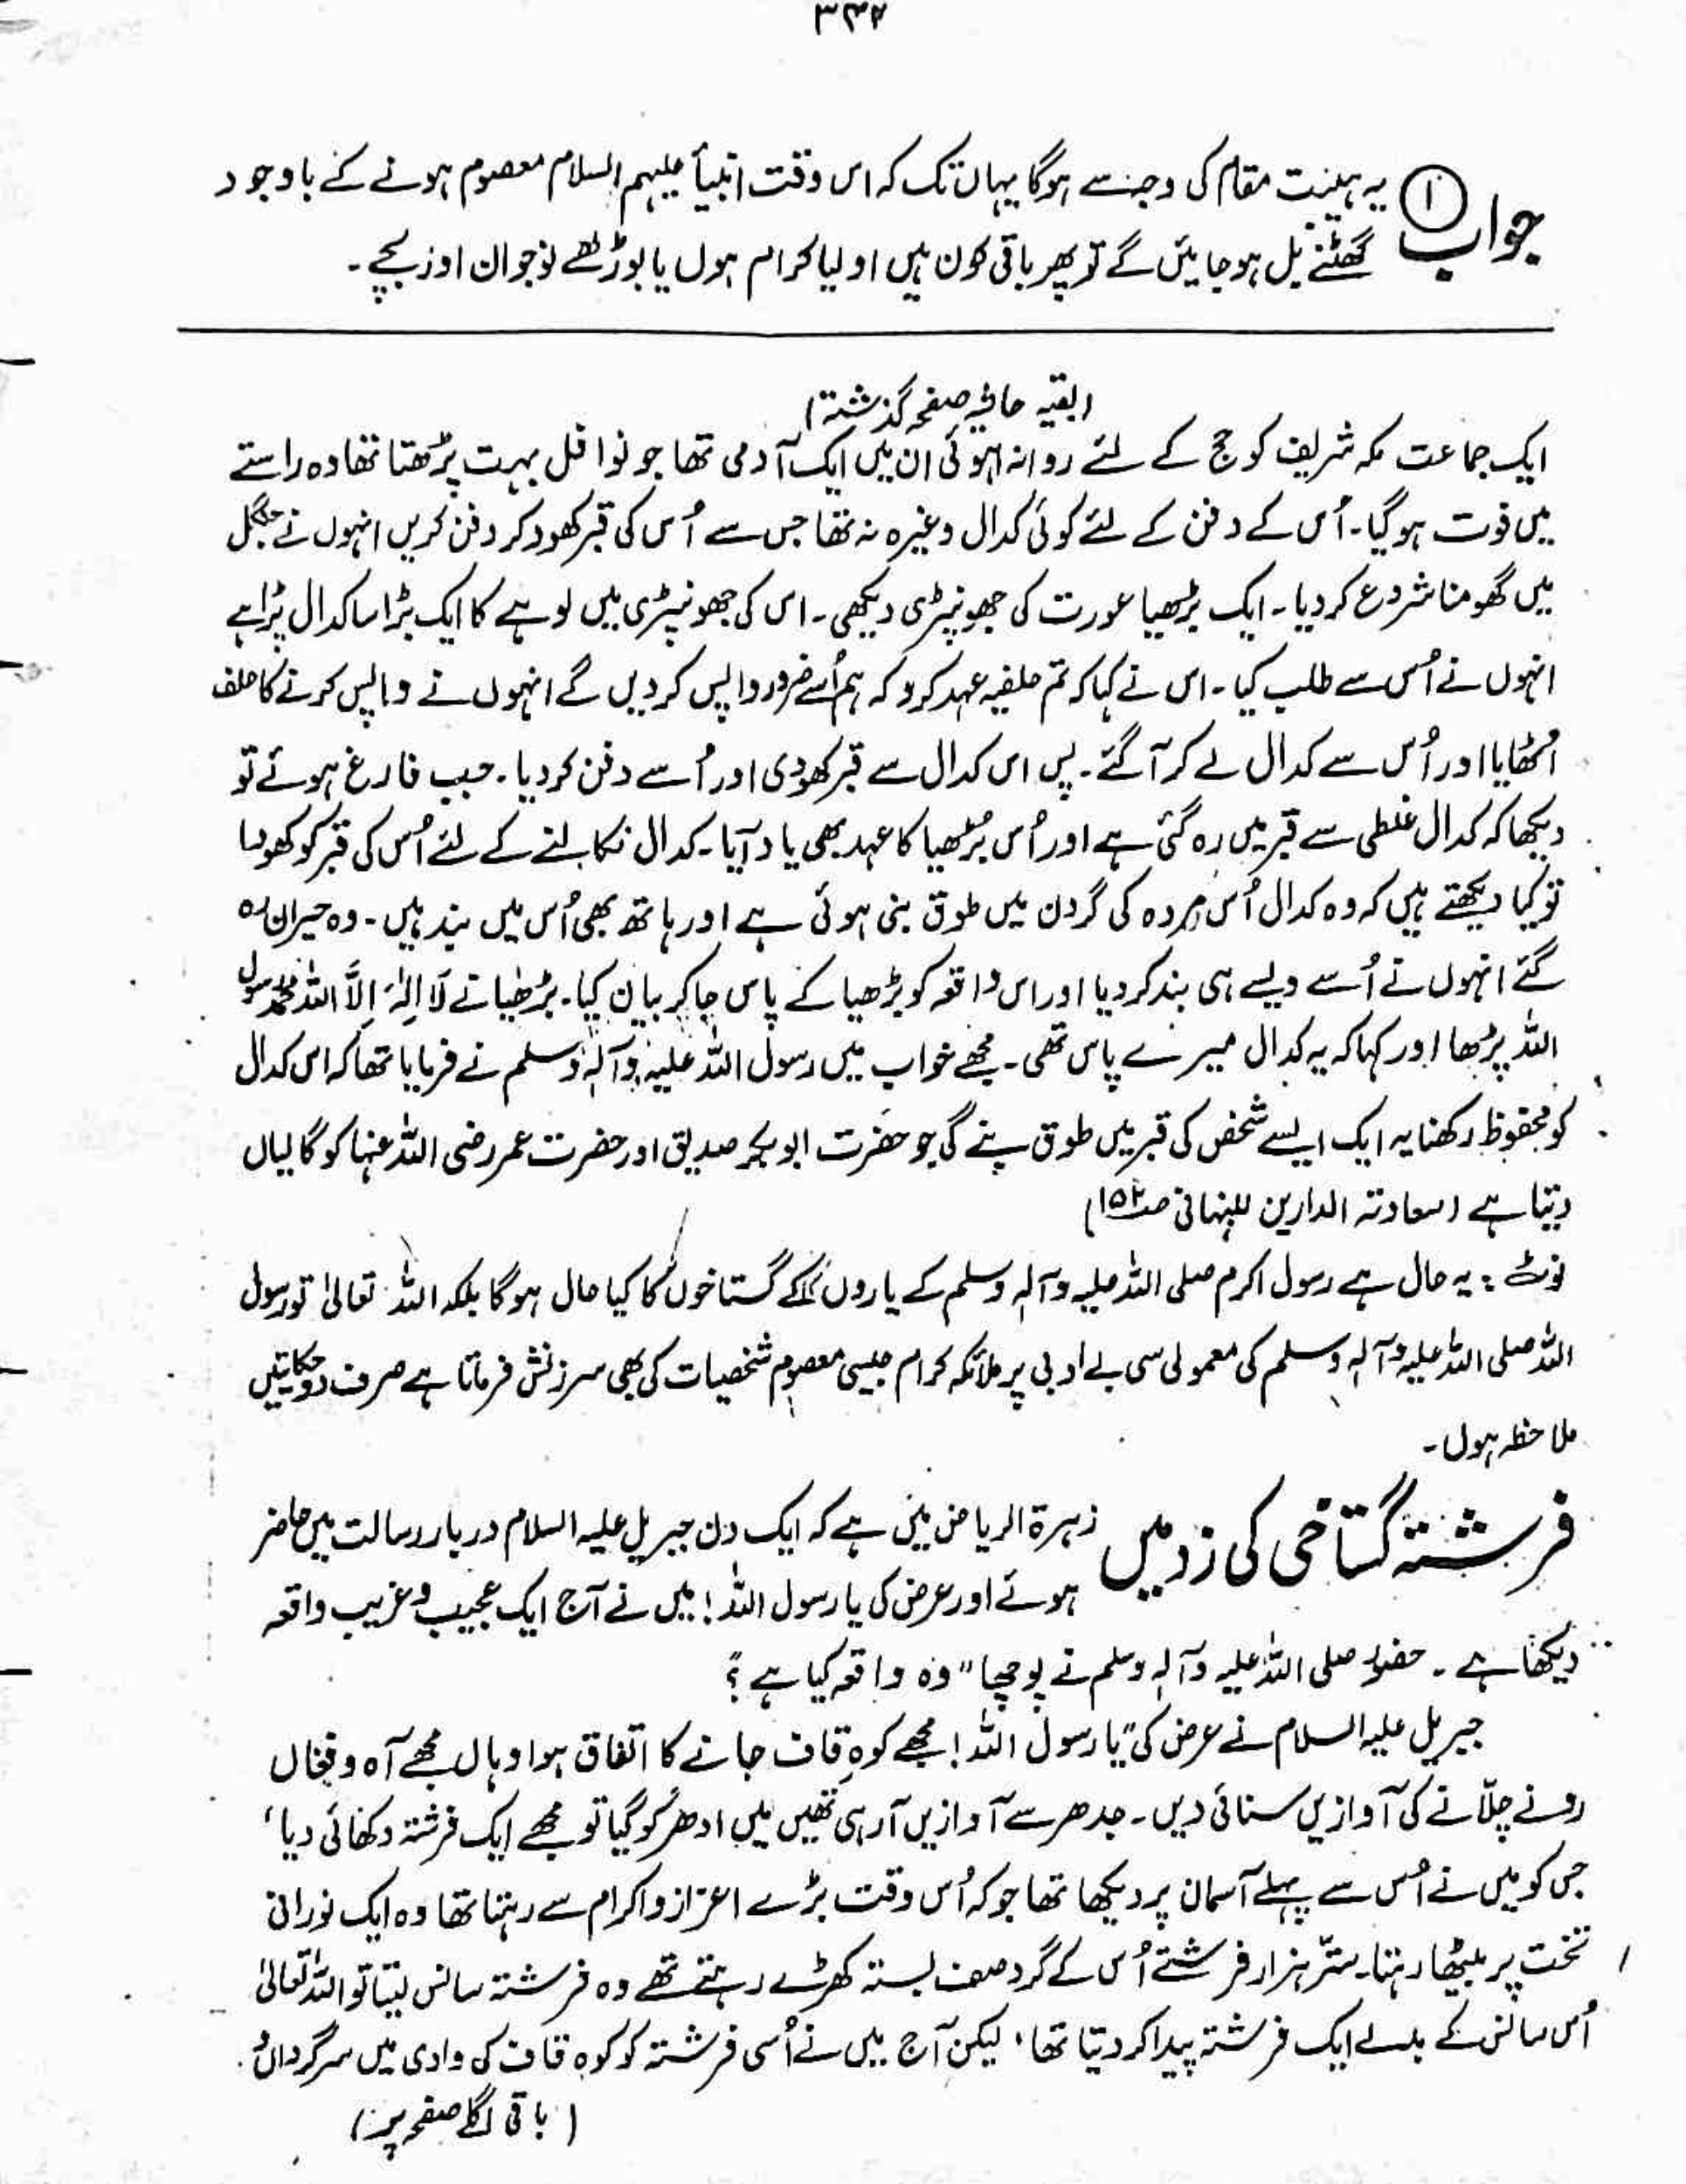 ۳۴۲
جواب ① یہ ہیئت مقام کی وجہ سے ہوگا یہاں تک کہ اس وقت انبیأ علیہم السلام معصوم ہونے کے باوجود
گھٹنے بل ہو جائیں گے تو پھر باقی کون ہیں اولیا کرام ہوں یا بوڑھے نوجوان اور بچے۔
(بقیہ حاشیہ صفحہ گذشتہ)
ایک جماعت مکہ شریف کو حج کے لئے روانہ ہوئی ان میں ایک آدمی تھا جو نوافل بہت پڑھتا تھا وہ راستے
میں فوت ہوگیا۔ اُس کے دفن کے لئے کوئی کدال وغیرہ نہ تھا جس سے اُس کی قبر کھود کر دفن کریں انہوں نے جنگل
میں گھومنا شروع کر دیا۔ ایک بڑھیا عورت کی جھونپڑی دیکھی۔ اس کی جھونپڑی میں لوہے کا ایک بڑا سا کدال پڑا ہے
انہوں نے اُس سے طلب کیا۔ اس نے کہا کہ تم حلفیہ عہد کرو کہ ہم اُسے ضرور واپس کر دیں گے انہوں نے واپس کرنے کا حلف
اُٹھایا اور اُس سے کدال لے کر آگئے۔ پس اس کدال سے قبر کھودی اور اُسے دفن کر دیا۔ جب فارغ ہوئے تو
دیکھا کہ کدال غلطی سے قبر میں رہ گئی ہے اور اُس بُڑھیا کا عہد بھی یاد آیا۔ کدال نکالنے کے لئے اُس کی قبر کو کھودا
تو کیا دیکھتے ہیں کہ وہ کدال اُس مردہ کی گردن میں طوق بنی ہوئی ہے اور ہاتھ بھی اُس میں بند ہیں۔ وہ حیران رہ
گئے انہوں نے اُسے ویسے ہی بند کر دیا اور اس واقعہ کو بڑھیا کے پاس جا کر بیان کیا۔ بڑھیا نے لَا اِلٰہَ اِلاَّ اللہُ محمد رسول
اللہ پڑھا اور کہا کہ یہ کدال میرے پاس تھی۔ مجھے خواب میں رسول اللہ علیہ وآلہٖ وسلم نے فرمایا تھا کہ اس کدال
کو محفوظ رکھنا یہ ایک ایسے شخص کی قبر میں طوق بنے گی جو حضرت ابوبکر صدیق اور حضرت عمر رضی اللہ عنہا کو گالیاں
دیتا ہے (سعادتہ الدارین للنبہانی صـ۱۵۲)
نوٹ : یہ حال ہے رسول اکرم صلی اللہ علیہ وآلہٖ وسلم کے یاروں کے گستاخوں کا کیا حال ہوگا بلکہ اللہ تعالیٰ تو رسول
اللہ صلی اللہ علیہ وآلہٖ وسلم کی معمولی سی بے ادبی پر ملائکہ کرام جیسی معصوم شخصیات کی بھی سرزنش فرماتا ہے صرف دو حکایتیں
ملاحظہ ہوں۔
فرشتہ گستاخی کی زد میں زہرۃ الریاض میں ہے کہ ایک دن جبریل علیہ السلام دربار رسالت میں حاضر
ہوئے اور عرض کی یا رسول اللہ! میں نے آج ایک عجیب و غریب واقعہ
دیکھا ہے۔ حضور صلی اللہ علیہ وآلہٖ وسلم نے پوچھا "وہ واقعہ کیا ہے؟
جبریل علیہ السلام نے عرض کی "یا رسول اللہ! مجھے کوہِ قاف جانے کا اتفاق ہوا وہاں مجھے آہ و فغاں
رونے چلّانے کی آوازیں سنائی دیں۔ جدھر سے آوازیں آ رہی تھیں میں ادھر کو گیا تو مجھے ایک فرشتہ دکھائی دیا،
جس کو میں نے اُس سے پہلے آسمان پر دیکھا تھا جو کہ اُس وقت بڑے اعزاز و اکرام سے رہتا تھا وہ ایک نورانی
تخت پر بیٹھا رہتا۔ ستّر ہزار فرشتے اُس کے گرد صف بستہ کھڑے رہتے تھے وہ فرشتہ سانس لیتا تو اللہ تعالیٰ
اُس سانس کے بدلے ایک فرشتہ پیدا کر دیتا تھا، لیکن آج میں نے اُسی فرشتہ کو کوہ قاف کی وادی میں سرگرداں
(باقی اگلے صفحہ پر)